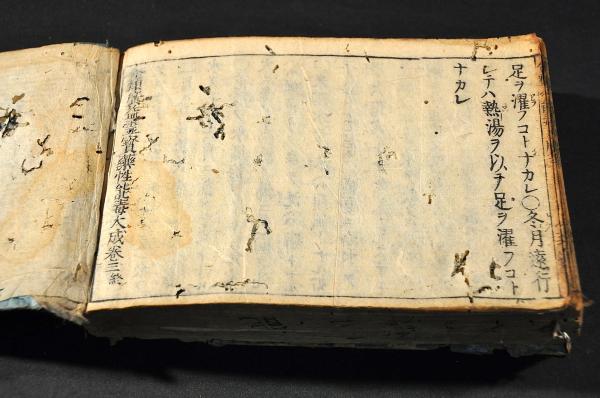 足ヲ濯フコトナカレ○冬月遠行
シテハ熱湯ヲ以テ足ヲ濯フコト
ナカレ
寳藥性能毒大成卷三終